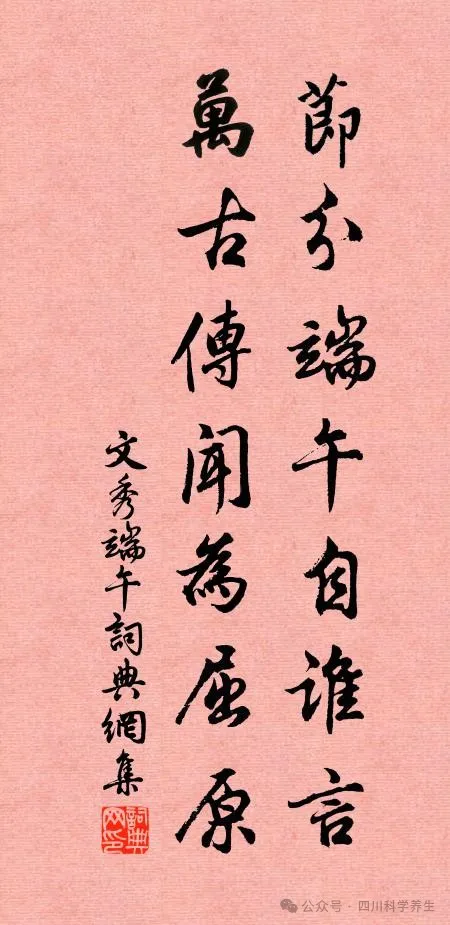 節分端午自誰言
萬古傳聞為屈原
文秀端午詞典網集
詞典
网印
公众号 · 四川科学养生